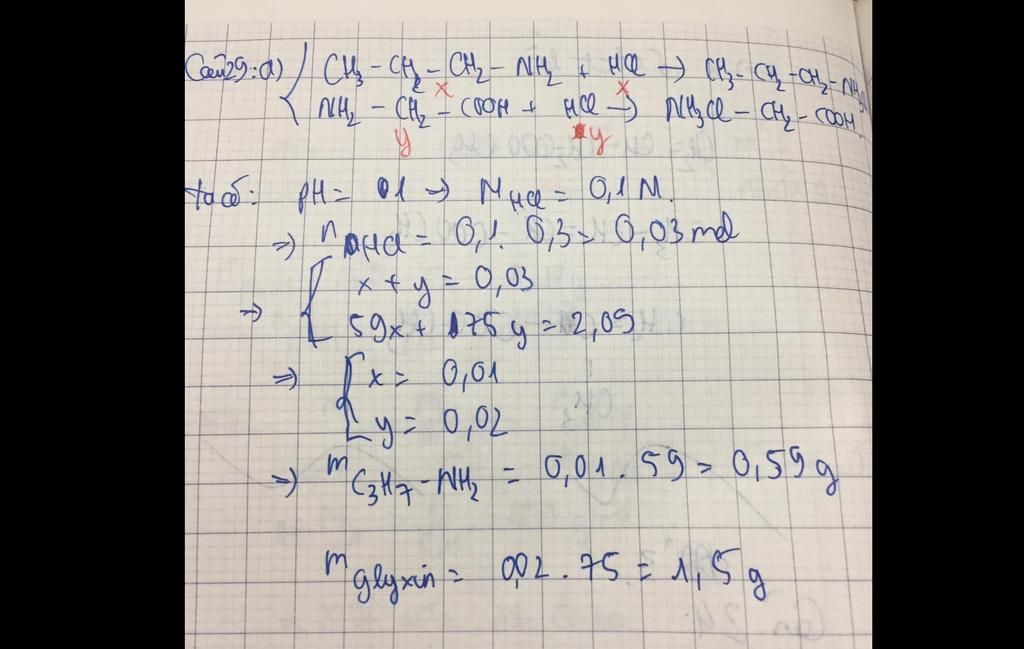 Câu 29: a) CH3 - CH2 - CH2 - NH2 + HCl → CH3 - CH2 - CH2 - NH3Cl
x x
NH2 - CH2 - COOH + HCl → NH3Cl - CH2 - COOH
y y
ta có: pH = 01 → MHCl = 0,1 M.
⇒ nHCl = 0,1. 0,3 = 0,03 mol
⇒ x + y = 0,03
59x + 75y = 2,09
⇒ x = 0,01
y = 0,02
⇒ mC3H7-NH2 = 0,01 . 59 = 0,59 g
mglyxin = 0,02 . 75 = 1,5 g